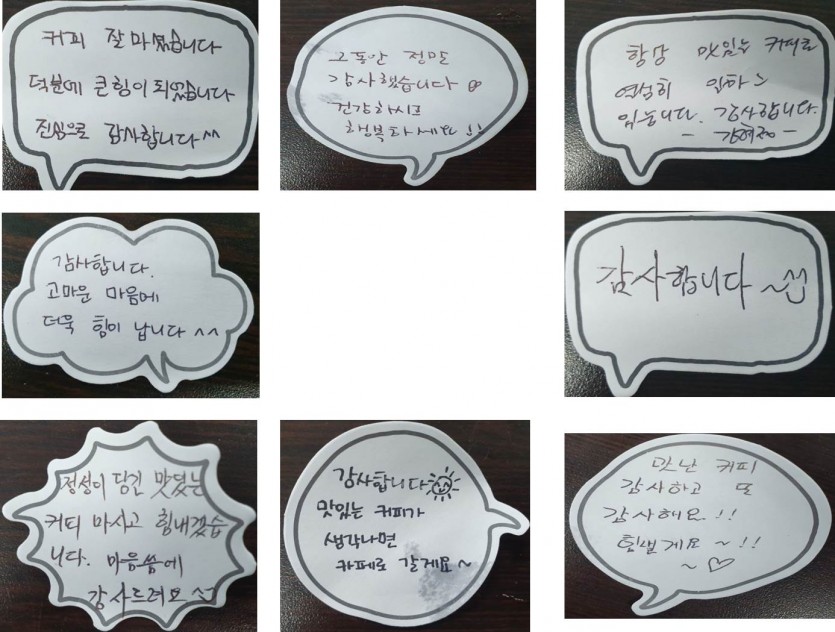 커피 잘 마셨습니다
덕분에 큰힘이 되었습니다
진심으로 감사합니다^^
그동안 정말
감사했습니다
건강하시고
행복하세요!!
항상 맛있는 커피로
열심히 일하고
있습니다. 감사합니다.
감사합니다.
고마운 마음에
더욱 힘이 납니다 ^^
감사합니다~^^
정성이 담긴 맛있는
커피 마시고 힘내겠습
니다. 마음씀에
감사드려요^^
감사합니다
맛있는 커피가
생각나면
카페로 갈게요~
맛난 커피
감사하고 또
감사해요.!!
힘낼게요~!!
~♡